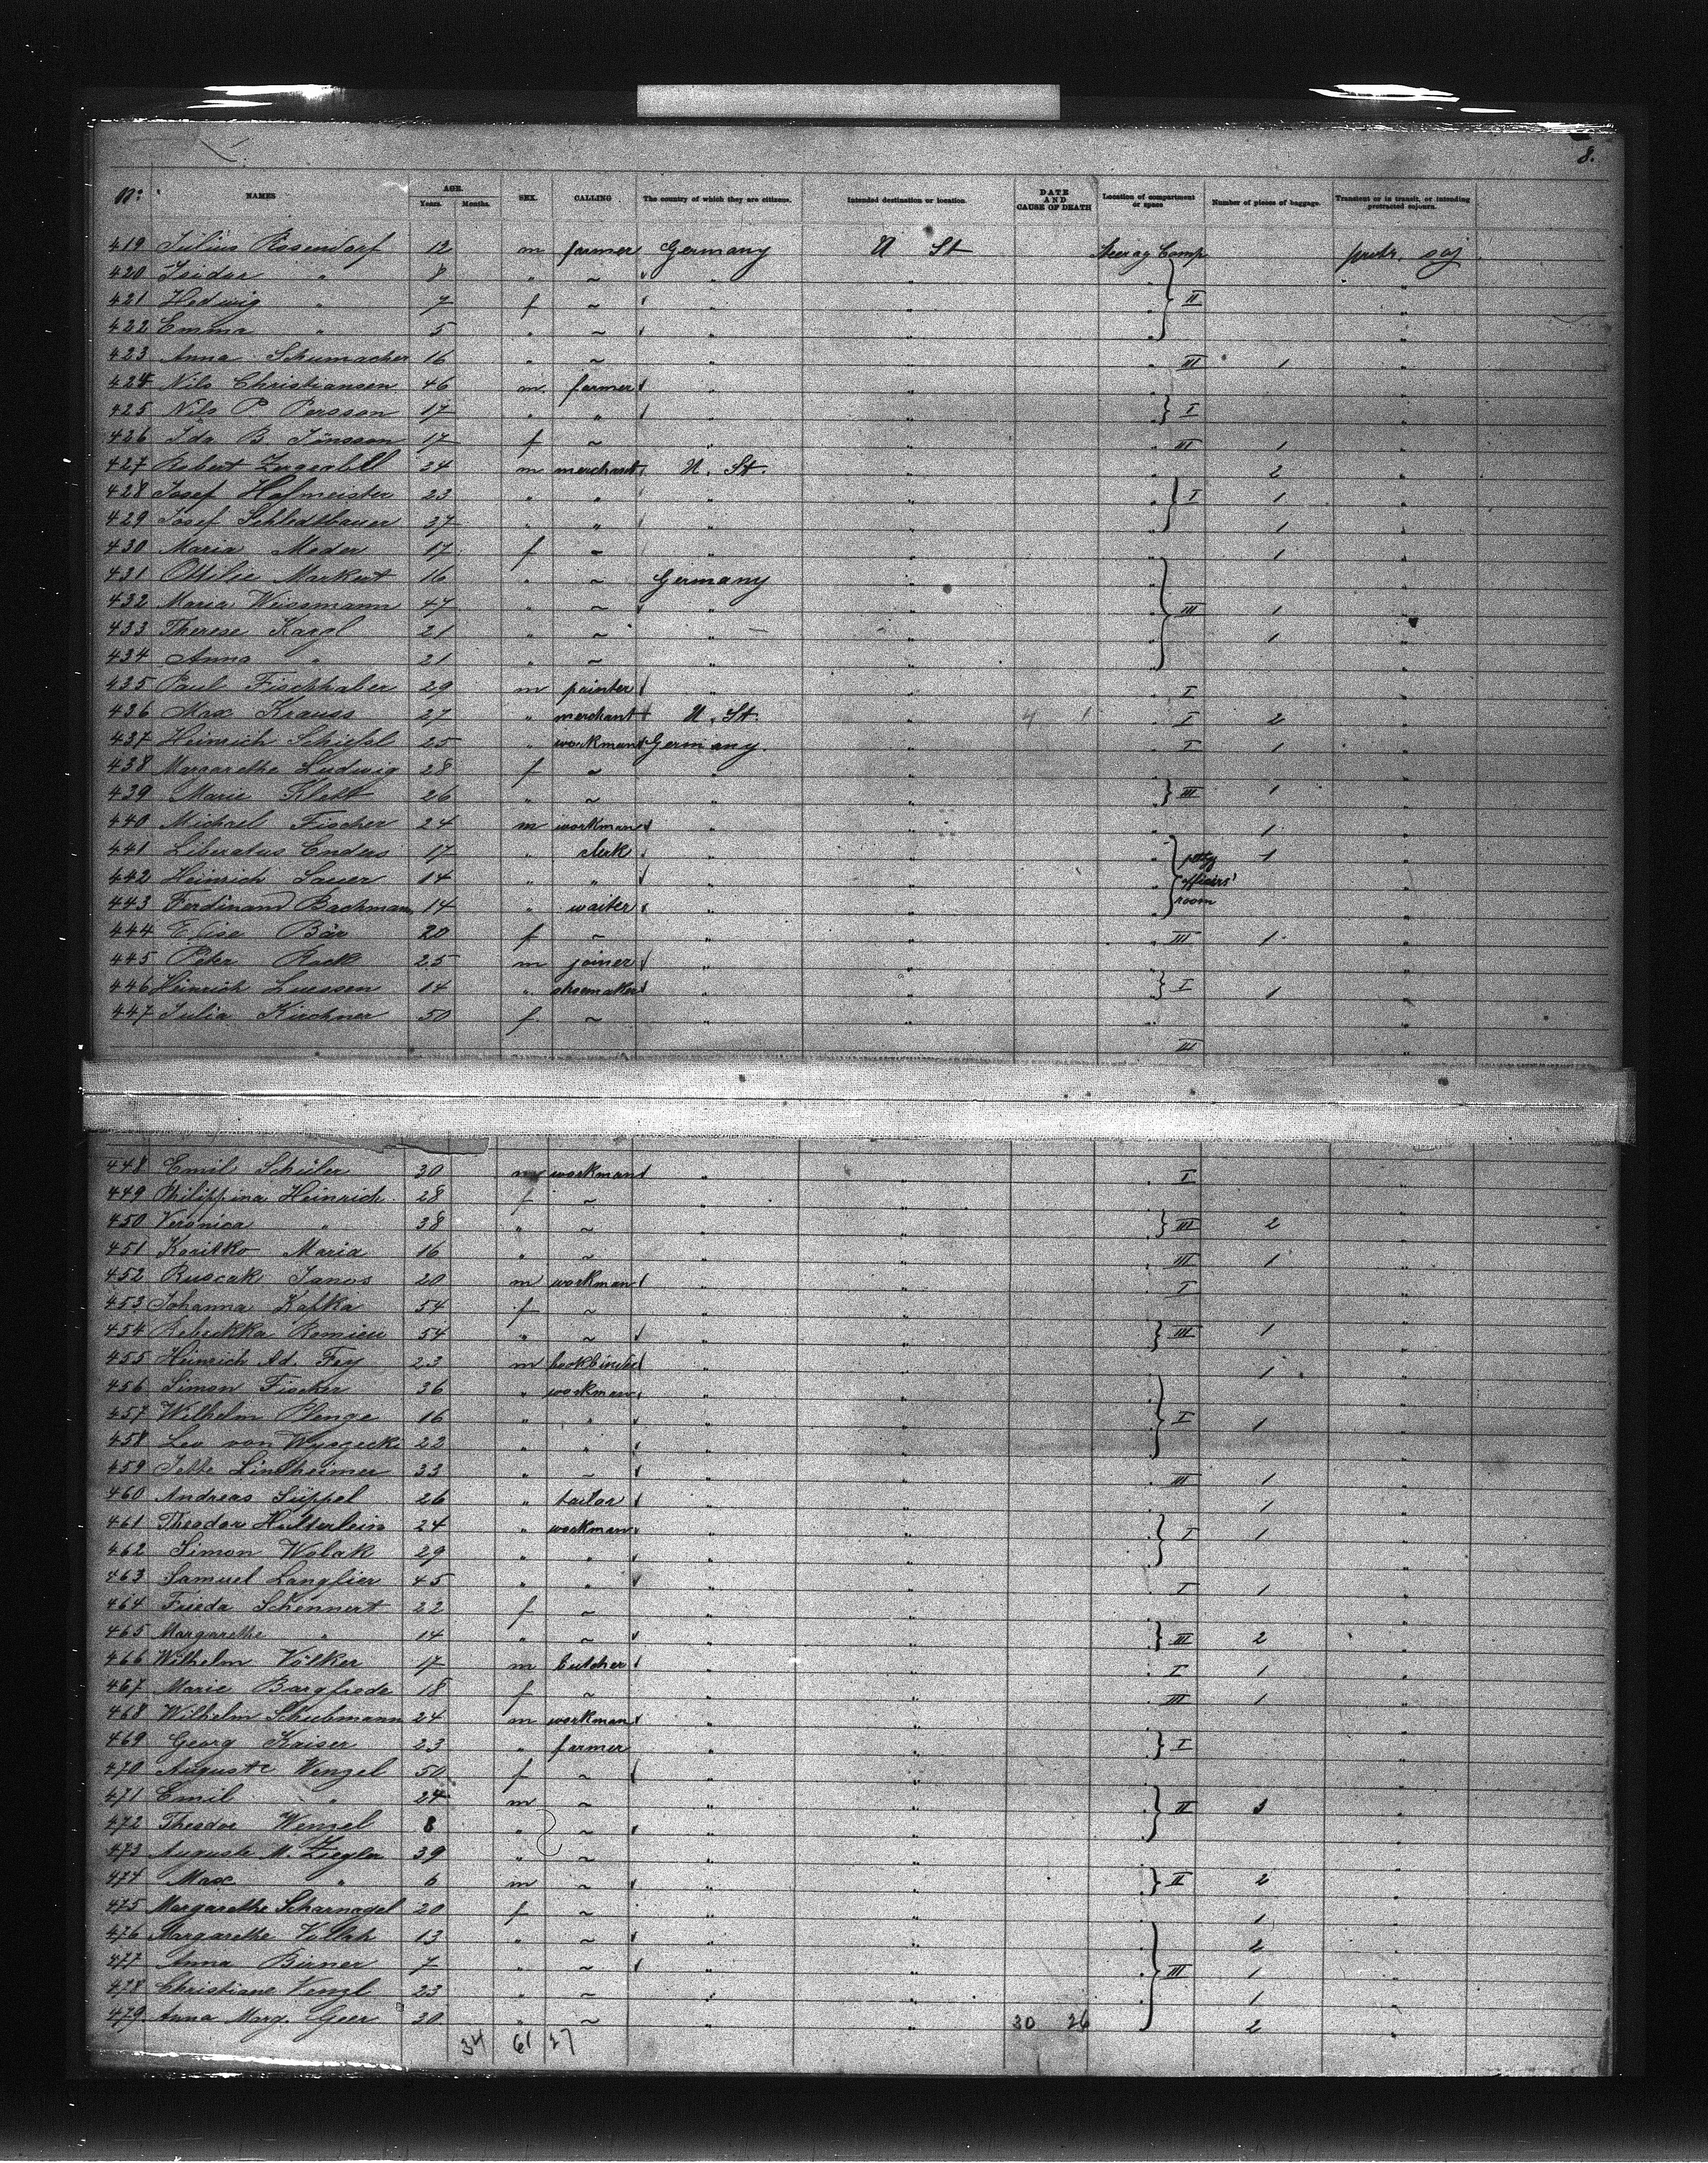 8.
No. NAMES AGE. Years. Months. SEX. CALLING The country of which they are citizens. Intended destination or location. DATE AND CAUSE OF DEATH Location of compartment or space Number of pieces of baggage. Transient or in transit, or intending protracted sojourn.
419 Julius Rosendorf 12 m farmer Germany U St Steerag Comp protr. soj.
420 Isidor " 8 " ~ " " " "
421 Hedwig " 7 f ~ " " " } II "
422 Emma " 5 " ~ " " " "
423 Anna Schumacher 16 " ~ " " " III 1 "
424 Nils Christiansen 46 m farmer " " "
425 Nils P. Persson 17 " " " " " } I "
426 Ida B. Jönsson 17 f ~ " " " III 1 "
427 Robert 34 m merchant U. St. " " 2 "
428 Josef Hofmeister 23 " " " " " } I 1 "
429 Josef Schledtbauer 37 " " " " " 1 "
430 Maria Meder 17 f ~ " " 1 "
431 Ottilie Markert 16 " ~ Germany " " "
432 Maria Weissmann 47 " ~ " " " } III 1 "
433 Therese Kargl 21 " ~ " " " 1 "
434 Anna " 21 " ~ " " " "
435 Paul Fischhaber 29 m painter " " " I "
436 Max Krauss 27 " merchant U. St. " " I 2 "
437 Heinrich Schiessl 25 " workman Germany " " I 1 "
438 Margarethe Ludwig 28 f ~ " " "
439 Marie Klett 26 " ~ " " " } III 1 "
440 Michael Fischer 24 m workman " " 1 "
441 Liberatus Enders 17 " clerk " " " } petty 1 "
442 Heinrich Sauer 14 " " " " " officirs' "
443 Ferdinand Bachmann 14 " waiter " " " room "
444 Elise Bär 20 f ~ " " " III 1 "
445 Peter Rock 25 m joiner " " "
446 Heinrich Luessen 14 " shoemaker " " " } I 1 "
447 Julia Kirchner 50 f ~ " " " "
III "
448 Emil Schüler 30 m workman " " " I "
449 Philippina Heinrich 28 f ~ " " "
450 Veronica " 38 " ~ " " " } III 2 "
451 Maria 16 " ~ " " " III 1 "
452 Ruscak Janos 20 m workman " " " I "
453 Johanna Kafka 54 f ~ " " "
454 Rebekka 54 " ~ " " " } III 1 "
455 Heinrich Ad. Fey 23 m bookbinder " " 1 "
456 Simon Fischer 36 " workman " " " "
457 Wilhelm Plenge 16 " " " " " } I 1 "
458 Leo von 22 " " " " " "
459 Jette Lindheimer 33 " ~ " " " III 1 "
460 Andreas Süppel 26 " tailor " " 1 "
461 Theodor Hutterlein 24 " workman " " " } I 1 "
462 Simon Wolak 29 " " " " " "
463 Samuel Langfier 45 " " " " " I 1 "
464 Frieda Schennert 22 f ~ " " "
465 Margarethe " 14 " ~ " " " } III 2 "
466 Wilhelm Völker 17 m butcher " " " I 1 "
467 Marie Bargfrede 18 f ~ " " " III 1 "
468 Wilhelm Schuhmann 24 m workman " " "
469 Georg Kaiser 23 " farmer " " " } I "
470 Auguste Wenzel 50 f ~ " " "
471 Emil " 24 m ~ " " " } II 3 "
472 Theodor Wenzel 8 " ~ " " " "
473 Auguste M. Ziegler 39 " ~ " " "
474 Max " 6 m ~ " " " } II 2 "
475 Margarethe Scharnagel 20 f ~ " " 1 "
476 Margarethe 13 " ~ " " " 2 "
477 Anna Birner 7 " ~ " " " } III 1 "
478 Christiane Venzl 23 " ~ " " " 1 "
479 Anna Marg. Geer 30 " ~ " " 30 26 2 "
34 61 27